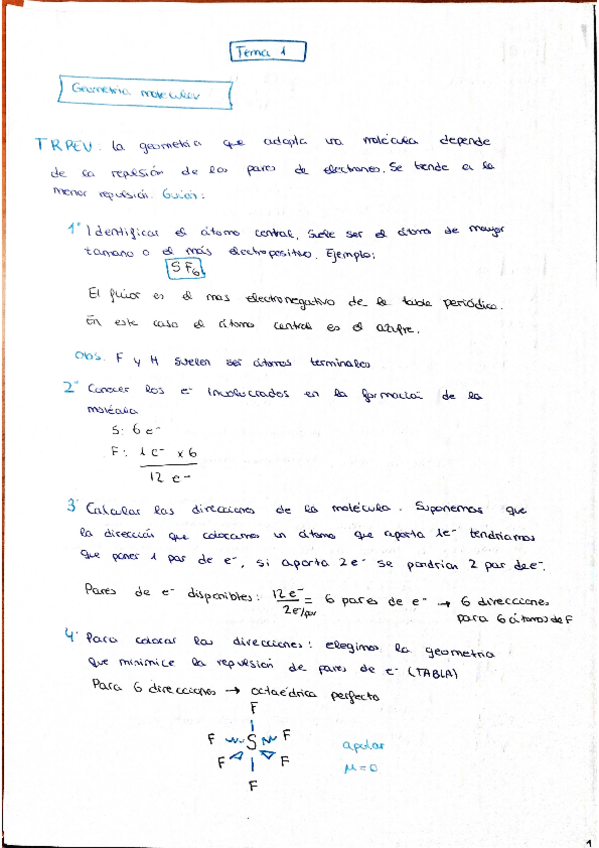 Tema 1
Geometría molecular
TRPEV: La geometría que adopta una molécula depende
de la repulsión de los pares de electrones. Se tiende a la
menor repulsión. Guión:
1º Identificar el átomo central, suele ser el átomo de mayor
tamaño o el más electropositivo. Ejemplo:
SF6
El flúor es el mas electronegativo de la tabla periódica.
En este caso el átomo central es el azufre.
Obs. F y H suelen ser átomos terminales
2º Conocer los e- involucrados en la formación de la
molécula
S: 6 e-
F: 1 e- x 6
12 e-
3º Calcular las direcciones de la molécula. Suponemos que
la dirección que colocamos un átomo que aporta 1e- tendríamos
que poner 1 par de e-, si aporta 2e- se pondrían 2 par de e-.
Pares de e- disponibles: 12 e- / 2 e-/par = 6 pares de e- → 6 direcciones
para 6 átomos de F
4º Para colocar las direcciones: elegimos la geometría
que minimice la repulsión de pares de e- (TABLA)
Para 6 direcciones → octaédrica perfecto
F
F S F
F F
F
apolar
μ = 0
1